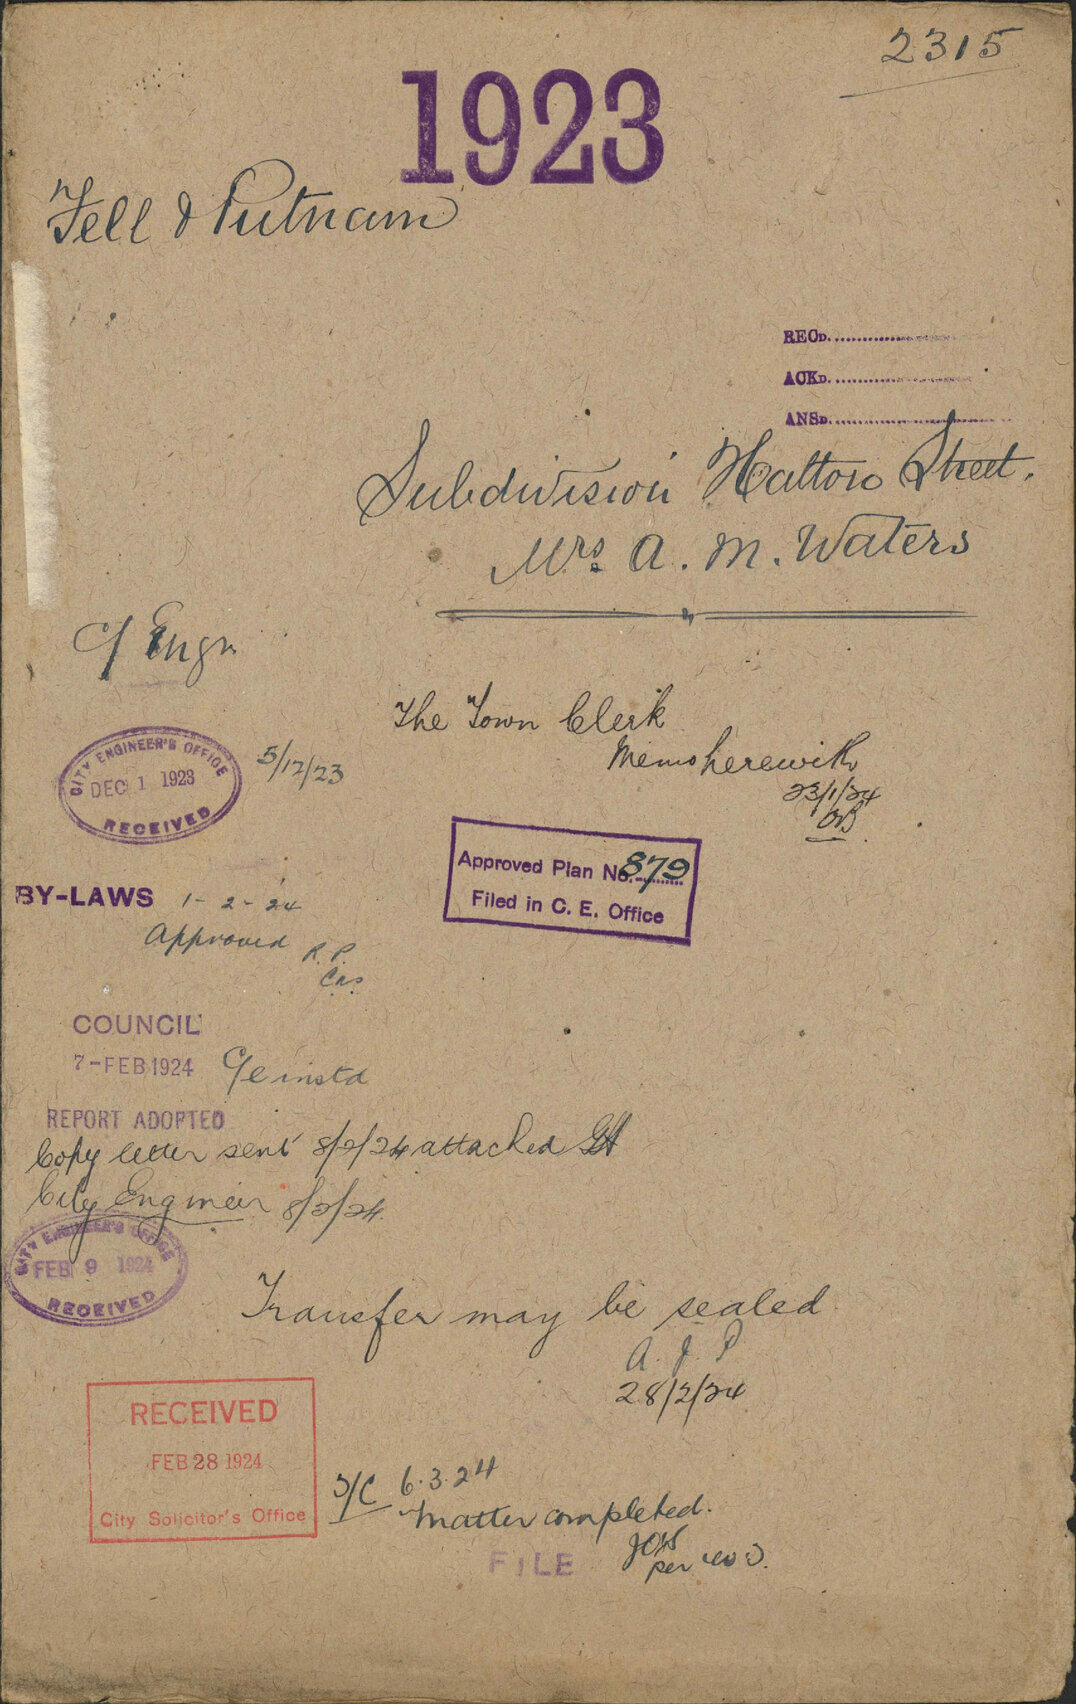 2315
1923
Fell & Putnam
RECD.
ACKD.
ANSD.
Subdivision Hatton Street.
Mrs. A. M. Waters
C/ Engr.
The Town Clerk
Memo herewith
23/1/24
CITY ENGINEER'S OFFICE
DEC 1 1923
RECEIVED
5/12/23
Approved Plan No. 879
Filed in C. E. Office
BY-LAWS 1-2-24
Approved
R.P.
COUNCIL
7-FEB 1924 C/E instd
REPORT ADOPTED
Copy letter sent 8/2/24 attached
City Engineer 8/2/24.
CITY ENGINEER'S OFFICE
FEB 9 1924
RECEIVED
Transfer may be sealed
A. J. P
28/2/24
RECEIVED
FEB 28 1924
City Solicitor's Office
T/C 6.3.24
Matter completed.
per
FILE